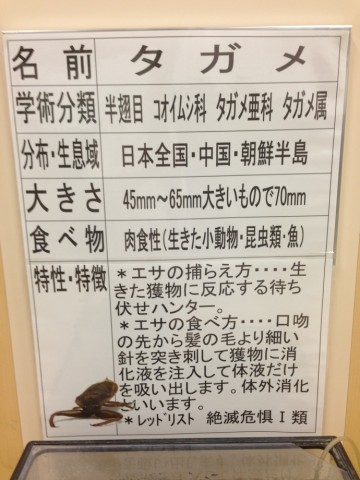 名前 タガメ
学術分類 半翅目 コオイムシ科 タガメ亜科 タガメ属
分布・生息域 日本全国・中国・朝鮮半島
大きさ 45mm～65mm大きいもので70mm
食べ物 肉食性(生きた小動物・昆虫類・魚)
特性・特徴
＊エサの捕らえ方‥‥生
きた獲物に反応する待ち
伏せハンター。
＊エサの食べ方‥‥口吻
の先から髪の毛より細い
針を突き刺して獲物に消
化液を注入して体液だけ
を吸い出します。体外消化
といいます。
＊レッドリスト 絶滅危惧Ⅰ類